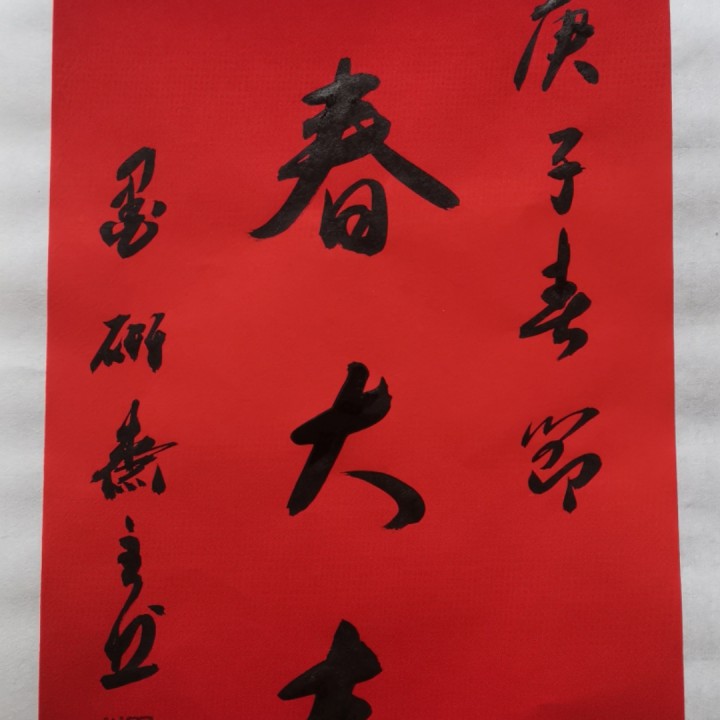 庚子春節
春大
墨研斋主